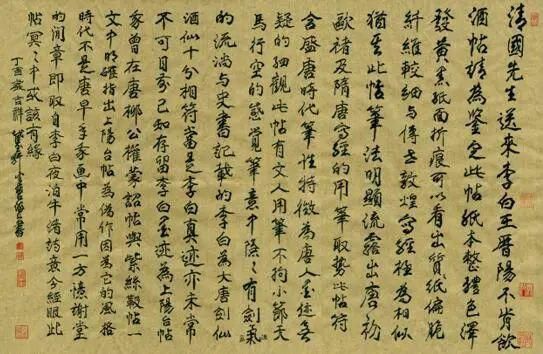 清國先生送來李白王晉陽不肯飲
酒帖請為鑒定此帖紙本整體色澤
發黃黑紙面折痕可以看出質紙偏脆
纖維較細与傳世敦煌寫經極為相似
猶是此帖筆法明顯流露出唐初
歐褚及隋唐寫經的用筆取勢此帖符
合盛唐時代筆性特徵為唐人墨迹無
疑的細觀此帖有文人用筆不拘小節天
馬行空的感覺筆意中隱々有劍氣
的流淌与史書記載的李白為大唐劍仙
酒仙十分相符當是李白真迹亦未常
不可目前已知存留李白墨迹為上陽台帖
家曾在唐柳公權蒙詔帖與紫絲靸帖一
文中明確指出上陽台帖為偽作因為它的風格
時代不是唐早年家畫中常用一方憶謝堂
的閒章即取自李白夜泊牛渚詩意今經眼此
帖冥々中或該有緣
丁酉歲吉祥